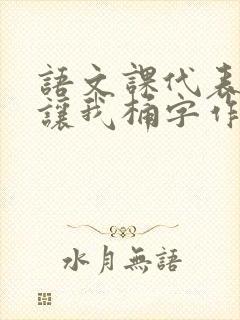 語文課代表
讓我桶字作
水月無語